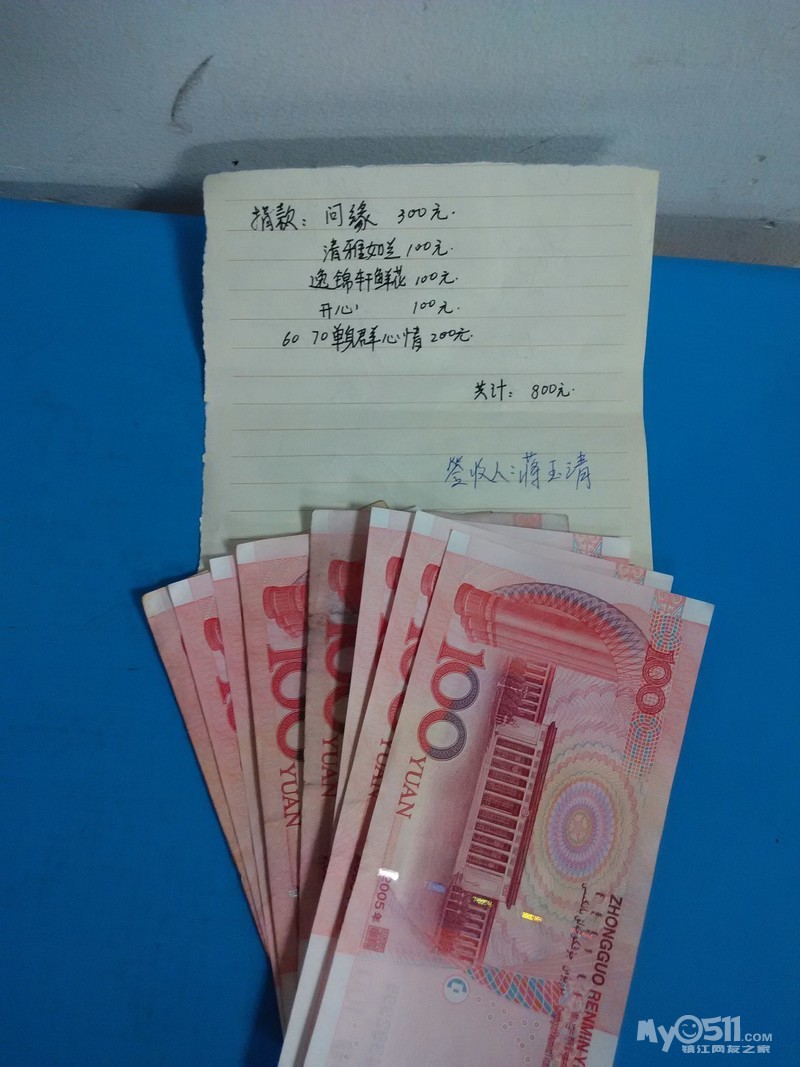 捐款：问缘 300元.
清雅如兰 100元.
逸锦轩鲜花 100元.
开心 100元.
60 70单身群心情 200元.
共计：800元.
签收人：蒋玉清
100
100
100
100 YUAN
100 YUAN
100 YUAN
100 YUAN
2005年
ZHONGGUO RENMIN Y
MyO511.COM
镇江网友之家